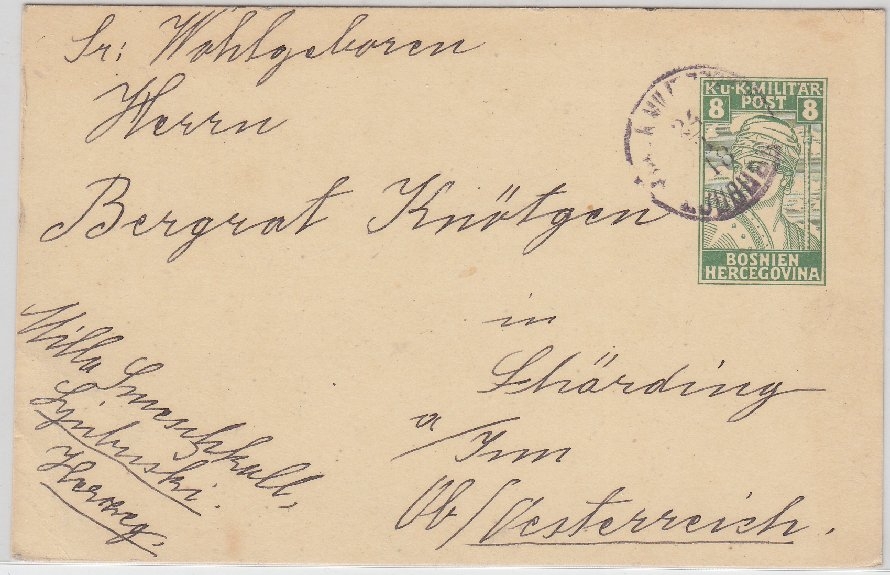 Sr: Wohlgeboren
Herrn
Bergrat Knötgen
in
Schärding
a/Inn
Ob/Oesterreich.
Villa
Ljubuski.
Herzeg.
K.u.K. MILITÄR-
POST
8 8
BOSNIEN
HERCEGOVINA
24
18